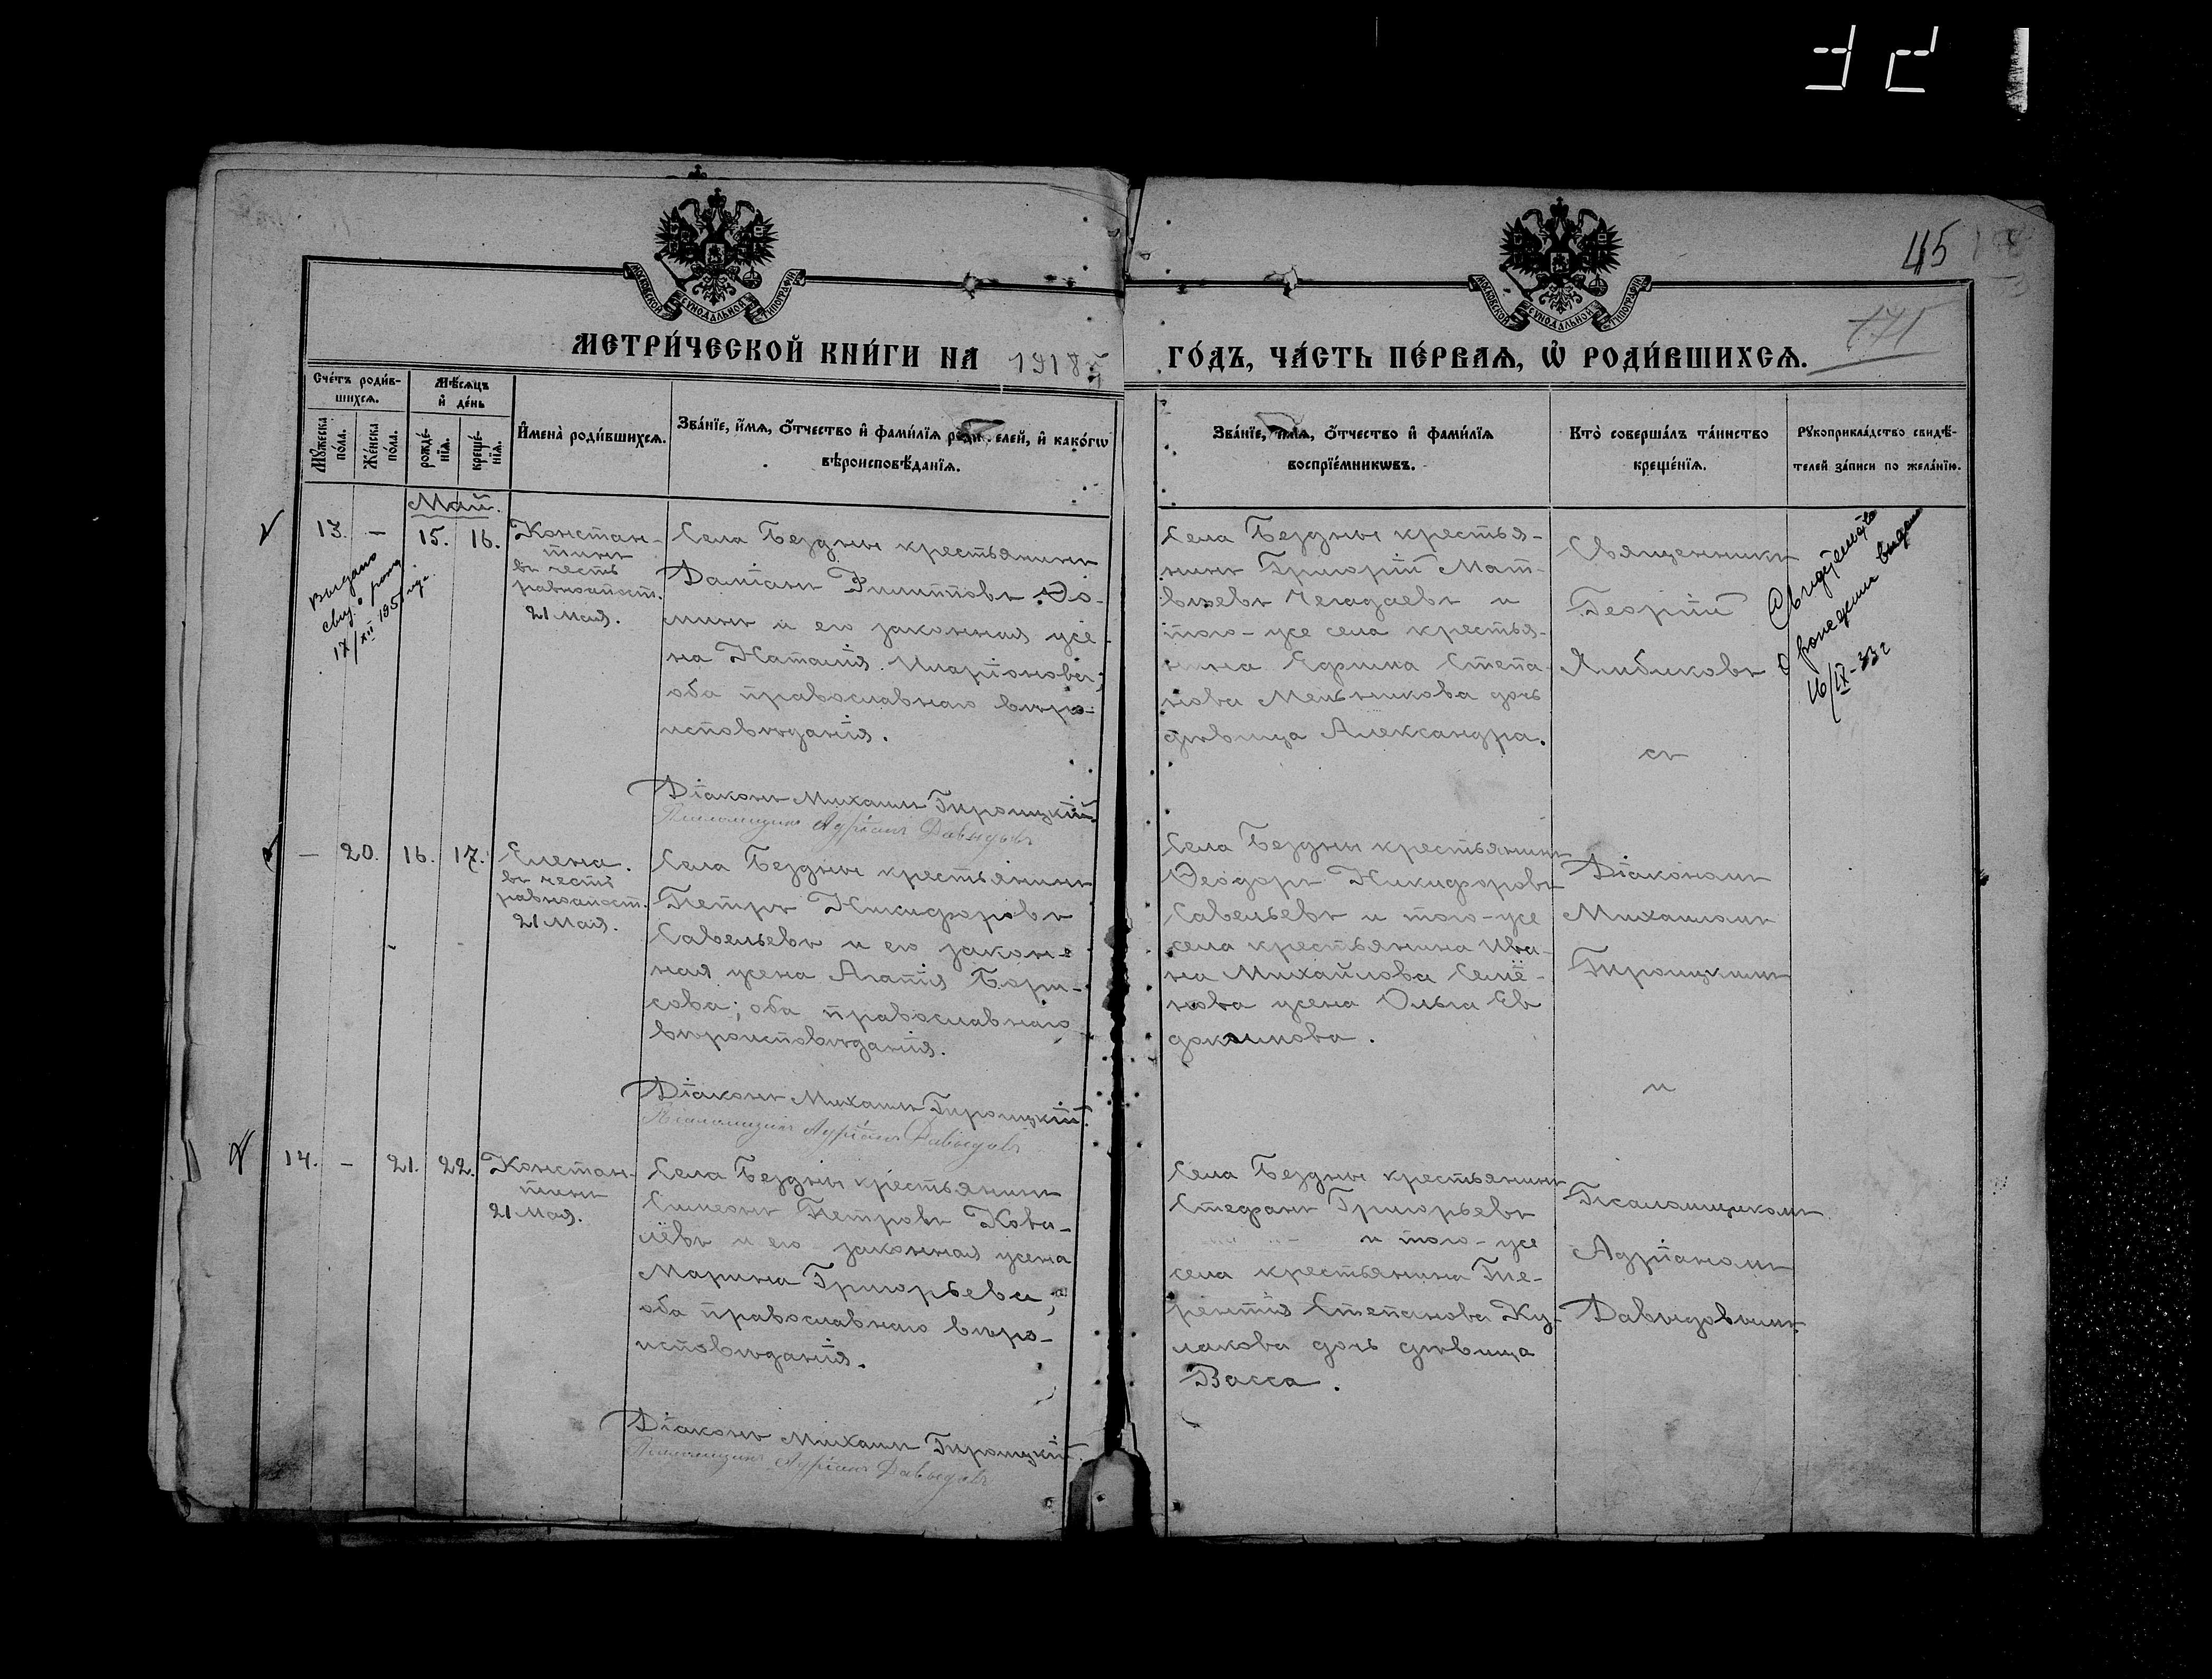 45
171
МОСКОВСКОЙ СѴНОДАЛЬНОЙ ТИПОГРАФІИ
МОСКОВСКОЙ СѴНОДАЛЬНОЙ ТИПОГРАФІИ
МЕТРИ́ЧЕСКОЙ КНИ́ГИ НА 1918й
ГО́ДЪ, ЧА́СТЬ ПЕ́РВАѦ, Ѡ҆ РОДИ́ВШИХСѦ.
Сче́тъ роди́в-
шихсѧ.
Мѣ́сѧцъ
и҆ де́нь
Мꙋ́жеска
по́ла.
Же́нска
по́ла.
рожде́-
нїѧ.
креще́-
нїѧ.
И҆мена̀ роди́вшихсѧ.
Зва́нїе, и҆́мѧ, ѻ҆́тчество и҆ фами́лїѧ роди елей, и҆ како́гѡ
вѣроисповѣ́данїѧ.
Зва́нїе, и҆́мѧ, ѻ҆́тчество и҆ фами́лїѧ
воспрїе́мникѡвъ.
Кто̀ соверша́лъ та́инство
креще́нїѧ.
Рꙋкоприкла́дство свидѣ́-
телей за́писи по жела́нїю.
Май.
13. — 15. 16.
Констан-
тинъ
въ честь
равноапост.
21 Мая.
Села Бездны крестьянинъ
Даміанъ Филипповъ Ѳо-
минъ и его законная же-
на Наталія Иларіонова;
оба православнаго вѣро-
исповѣданія.
Діаконъ Михаилъ Троицкій
Псаломщикъ Адріанъ Давыдовъ
Выдано
свид. о рожд
17/XII 195
Села Бездны крестья-
нинъ Григорій Мат-
вѣевъ Чегадаевъ и
того-же села крестья-
нина Ефима Степа-
нова Мельникова дочь
дѣвица Александра.
Священникъ
Георгій
Ямбиковъ
съ
Свидетельство
о рождении выдано
16/IX-33г
— 20. 16. 17.
Елена.
въ честь
равноапост.
21 Мая.
Села Бездны крестьянинъ
Петръ Никифоровъ
Савельевъ и его закон-
ная жена Агапія Бори-
сова; оба православнаго
вѣроисповѣданія.
Діаконъ Михаилъ Троицкій.
Псаломщикъ Адріанъ Давыдовъ
Села Бездны крестьянинъ
Ѳеодоръ Никифоровъ
Савельевъ и того-же
села крестьянина Ива-
на Михайлова Семё-
нова жена Ольга Ев
докимова.
Діакономъ
Михаиломъ
Троицкимъ
и
14. — 21. 22.
Констан-
тинъ
21 Мая.
Села Бездны крестьянинъ
Симеонъ Петровъ Кова-
лёвъ и его законная жена
Марина Григорьева;
оба православнаго вѣро-
исповѣданія.
Діаконъ Михаилъ Троицкій.
Псаломщикъ Адріанъ Давыдовъ
Села Бездны крестьянинъ
Стефанъ Григорьевъ
и того-же
села крестьянина Те-
рентія Степанова Ку-
лакова дочь дѣвица
Васса.
Псаломщикомъ
Адріаномъ
Давыдовымъ.